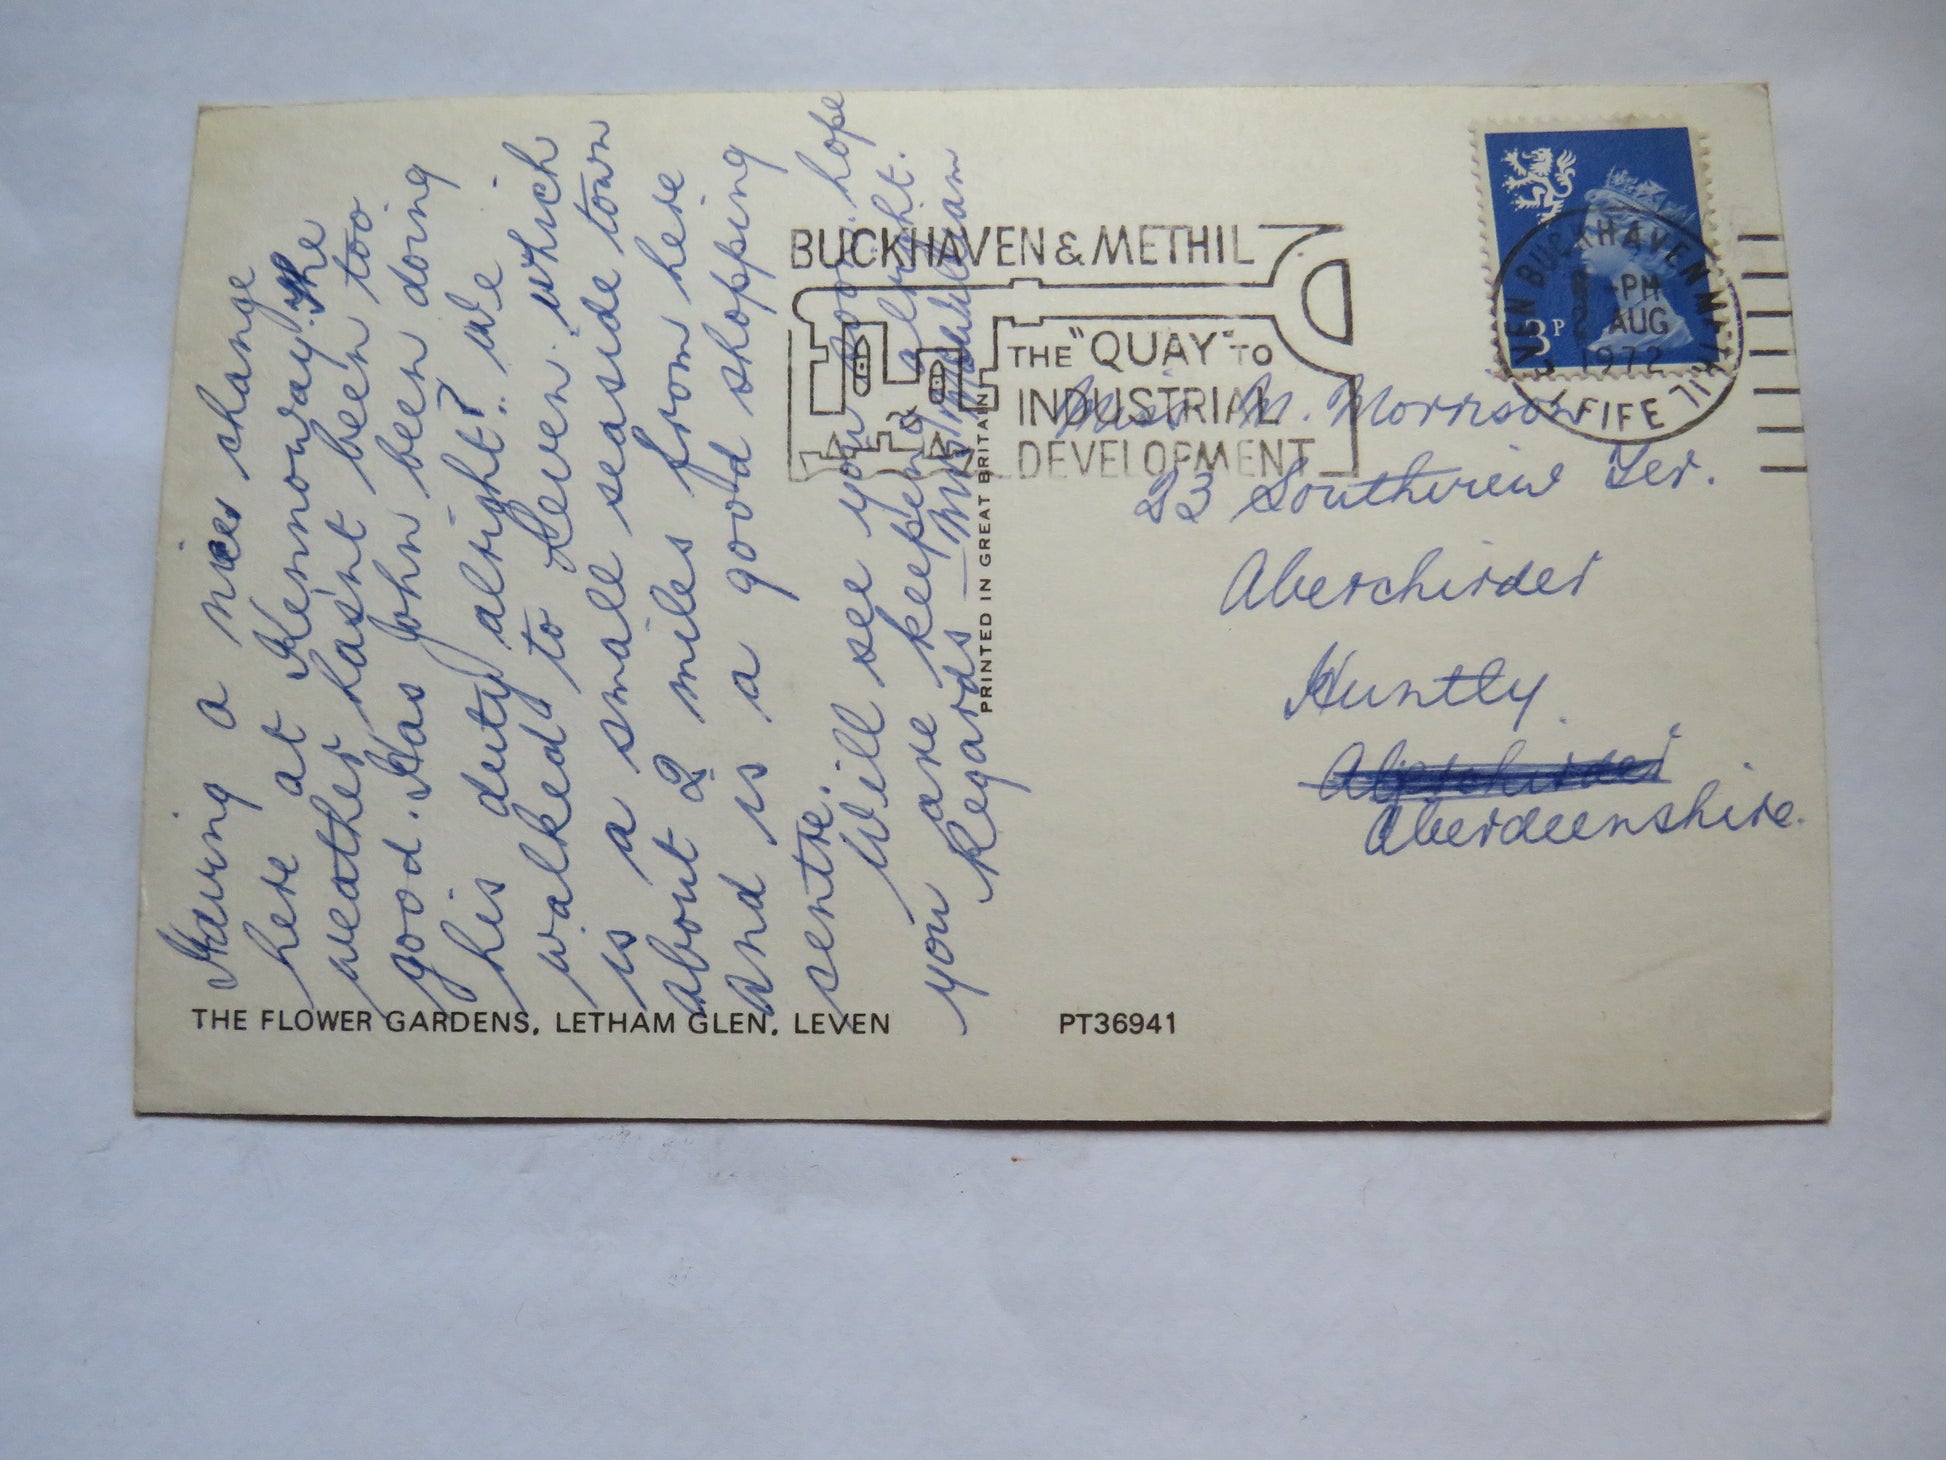 Having a nice change
here at Kennoway. The
weather hasnt been too
good. Has John been doing
his duty alright?.. we
walked to Leven. which
is a small seaside town
about 2 miles from here
and is a good shopping
sentre.
Will see you soon. hope
you are keeping alright.
Regards — Mrs
THE FLOWER GARDENS, LETHAM GLEN, LEVEN
PRINTED IN GREAT BRITAIN
BUCKHAVEN & METHIL
THE "QUAY" TO
INDUSTRIAL
DEVELOPMENT
3P
LEVEN BUCKHAVEN METHIL
-PM
AUG
1972
FIFE
Miss M. Morrison
23 Southview Ter.
Aberchirder
Huntly.
Aberchirder
Aberdeenshire.
PT36941